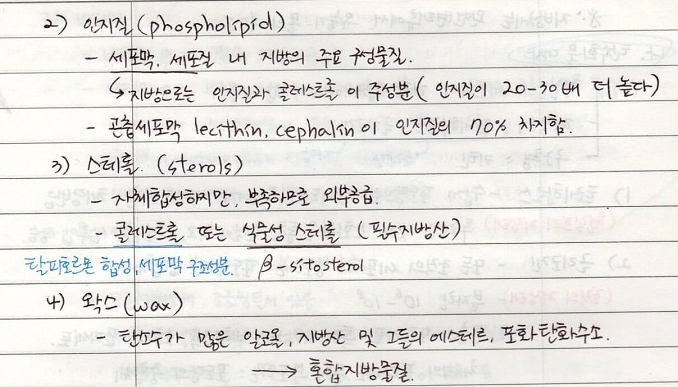 2) 인지질 (phospholipid)
- 세포막, 세포질 내 지방의 주요 구성물질.
↳ 지방으로는 인지질과 콜레스트롤 이 주성분 ( 인지질이 20-30배 더 높다)
- 곤충세포막 lecithin, cephalin 이 인지질의 70% 차지함.
3) 스테롤. (sterols)
- 자체합성하지만, 부족하므로 외부공급.
콜레스트롤 또는 식물성 스테롤 (필수지방산)
탈피호르몬 합성, 세포막 구조성분. β-sitosterol
4) 왁스 (wax)
- 탄소수가 많은 알코올, 지방산 및 그들의 에스테르, 포화탄화수소.
→ 혼합지방물질.